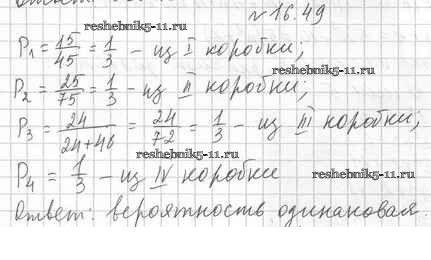 №16.49
reshebnik5-11.ru
P₁ = 15/45 = 1/3 - из I коробки;
reshebnik5-11.ru
P₂ = 25/75 = 1/3 - из II коробки;
P₃ = 24/24+48 = 24/72 = 1/3 - из III коробки;
reshebnik5-11.ru
P₄ = 1/3 - из IV коробки
reshebnik5-11.ru
Ответ: вероятность одинаковая.